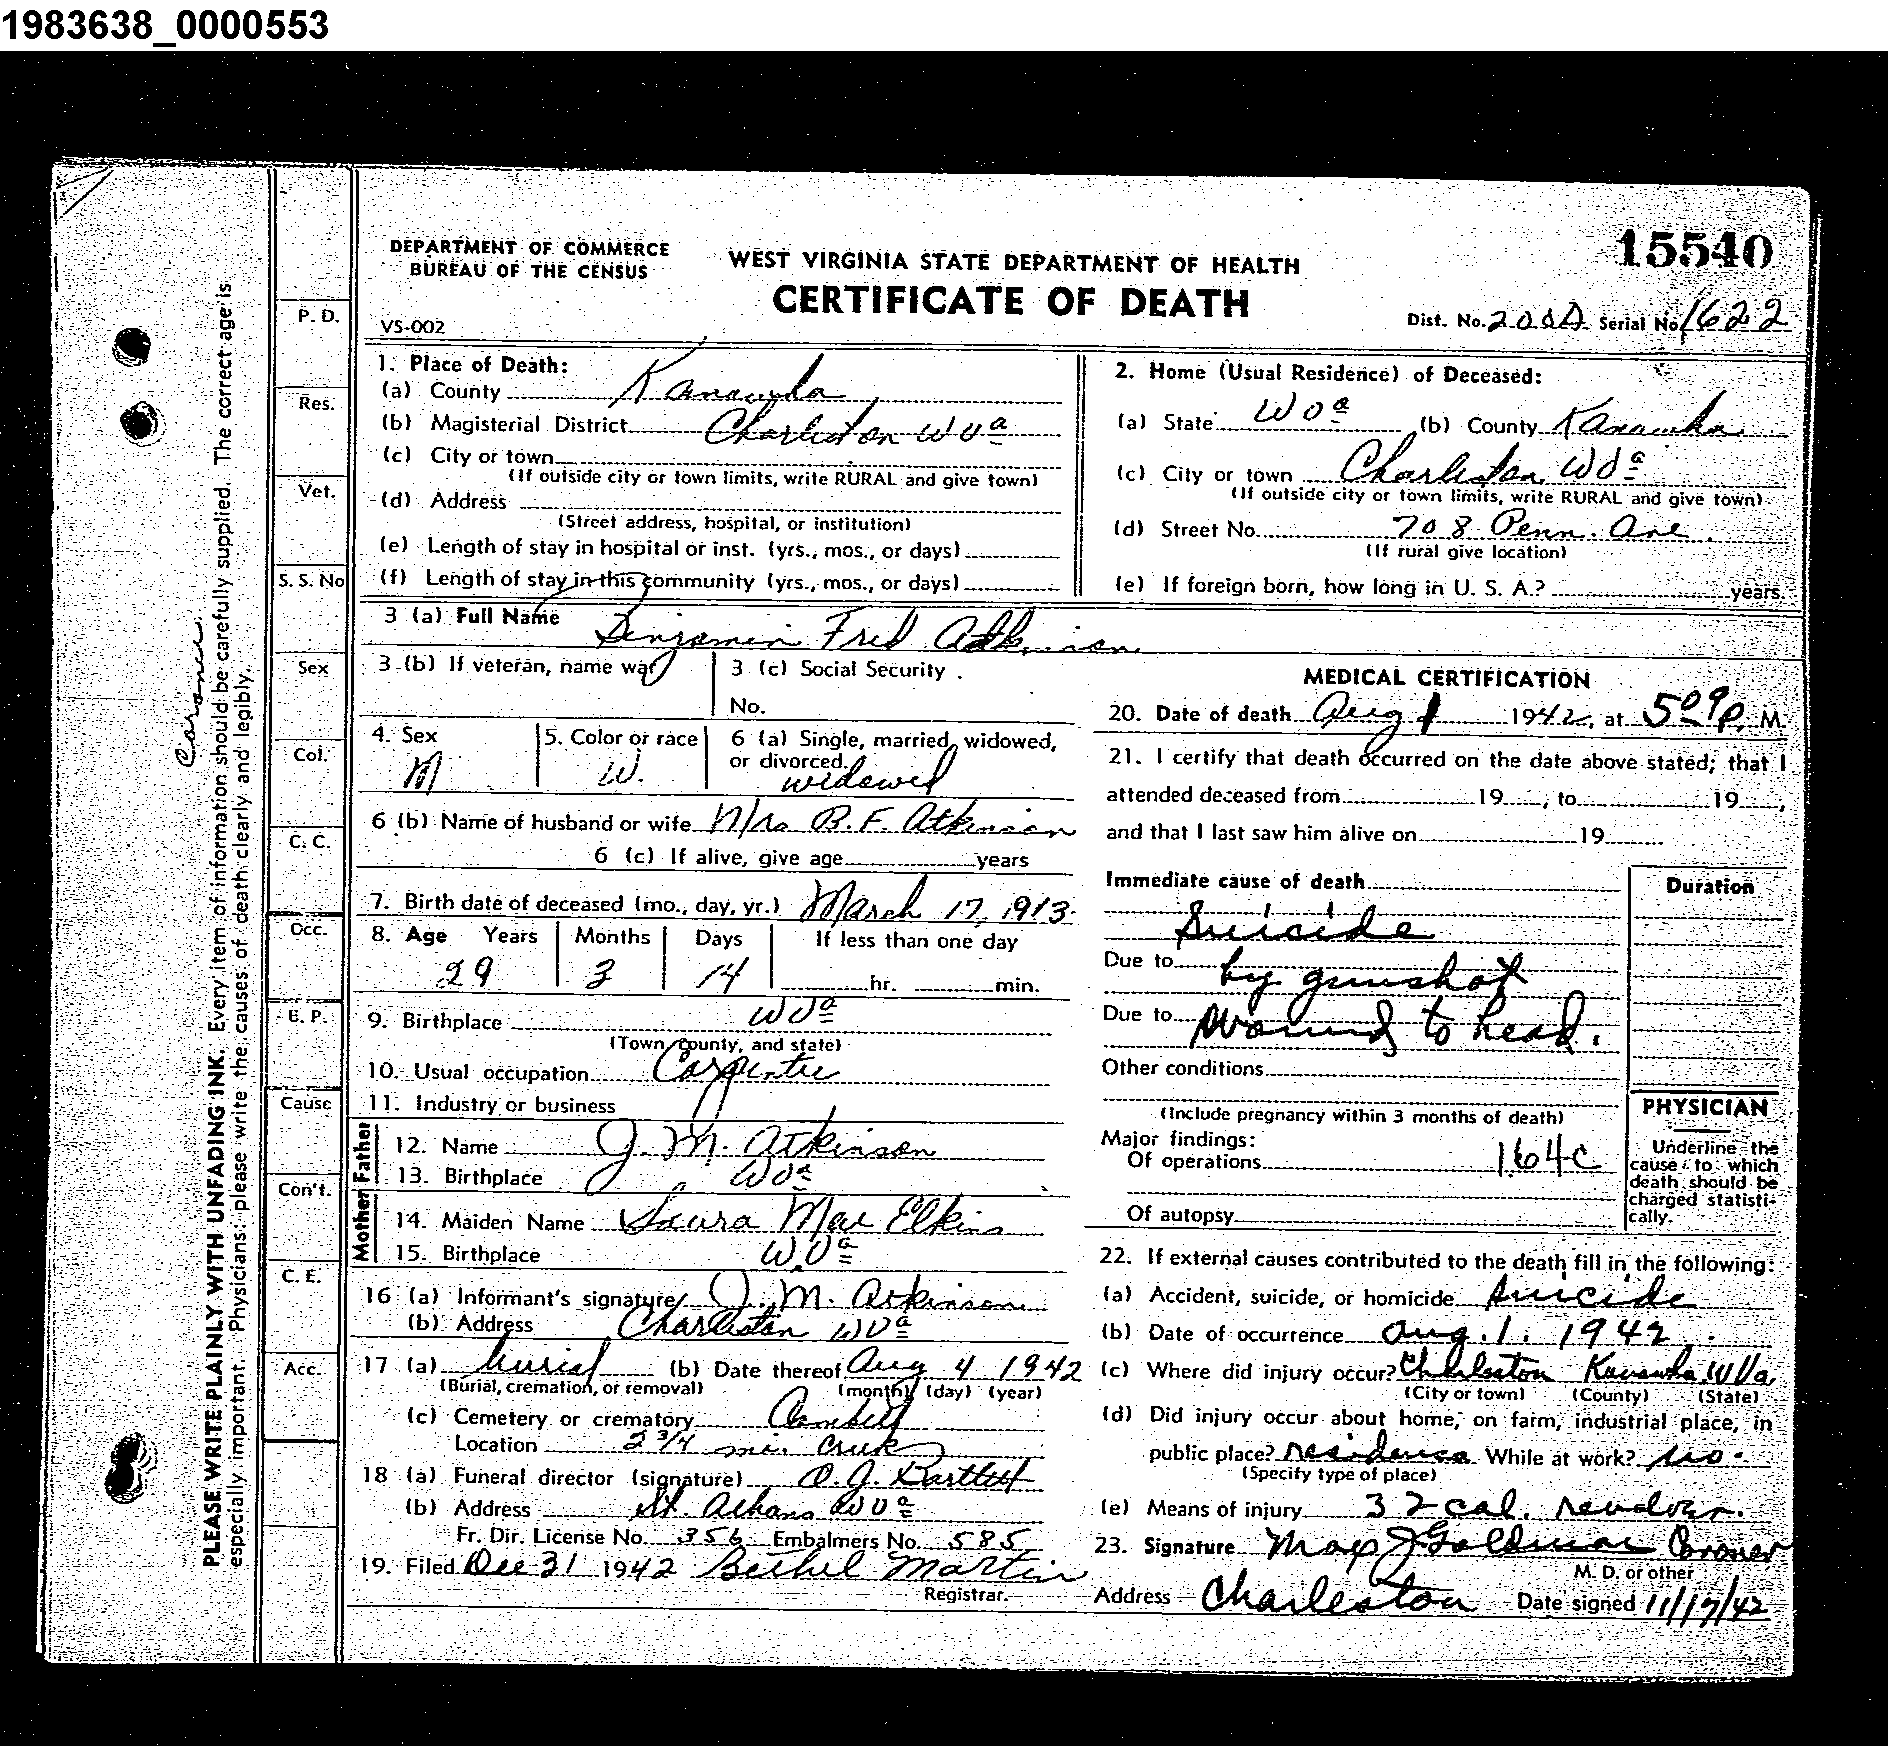 1983638_0000553
DEPARTMENT OF COMMERCE
BUREAU OF THE CENSUS
WEST VIRGINIA STATE DEPARTMENT OF HEALTH
CERTIFICATE OF DEATH
15540
VS-002
Dist. No. 200A Serial No. 1622
1. Place of Death:
(a) County Kanawha
(b) Magisterial District Charleston W Va
(c) City or town
(If outside city or town limits, write RURAL and give town)
(d) Address
(Street address, hospital, or institution)
(e) Length of stay in hospital or inst. (yrs., mos., or days)
(f) Length of stay in this community (yrs., mos., or days)
2. Home (Usual Residence) of Deceased:
(a) State W Va (b) County Kanawha
(c) City or town Charleston W Va
(If outside city or town limits, write RURAL and give town)
(d) Street No. 708 Penn. Ave.
(If rural give location)
(e) If foreign born, how long in U. S. A.? years.
3 (a) Full Name Benjamin Fred Atkinson
3 (b) If veteran, name war
3 (c) Social Security
No.
4. Sex M
5. Color or race W.
6 (a) Single, married, widowed,
or divorced. widowed
6 (b) Name of husband or wife Mrs B. F. Atkinson
6 (c) If alive, give age years
7. Birth date of deceased (mo., day, yr.) March 17, 1913
8. Age Years Months Days If less than one day
29 3 14 hr. min.
9. Birthplace W Va
(Town, county, and state)
10. Usual occupation Carpenter
11. Industry or business
Father
12. Name J. M. Atkinson
13. Birthplace W Va
Mother
14. Maiden Name Laura Mae Elkins
15. Birthplace W. Va
16 (a) Informant's signature J. M. Atkinson
(b) Address Charleston W Va
17 (a) burial (b) Date thereof Aug 4 1942
(Burial, cremation, or removal) (month) (day) (year)
(c) Cemetery or crematory
Location 2 3/4 mi. Creek
18 (a) Funeral director (signature) O. J. Bartlett
(b) Address St. Albans W Va
Fr. Dir. License No. 356 Embalmers No. 585
19. Filed Dec 31 1942 Bethel Martin
Registrar.
MEDICAL CERTIFICATION
20. Date of death Aug 1 1942, at 5 09 p. M.
21. I certify that death occurred on the date above stated; that I
attended deceased from 19 , to 19 ,
and that I last saw him alive on 19
Immediate cause of death
Suicide
Due to by gunshot
Due to wound to head.
Other conditions
(Include pregnancy within 3 months of death)
Major findings:
Of operations 164c
Of autopsy
Duration
PHYSICIAN
Underline the
cause to which
death should be
charged statisti-
cally.
22. If external causes contributed to the death fill in the following:
(a) Accident, suicide, or homicide Suicide
(b) Date of occurrence Aug. 1. 1942
(c) Where did injury occur? Charleston Kanawha W Va
(City or town) (County) (State)
(d) Did injury occur about home, on farm, industrial place, in
public place? residence While at work? no.
(Specify type of place)
(e) Means of injury 32 cal. revolver.
23. Signature Max J Goldman Coroner
M. D. or other
Address Charleston Date signed 11/17/42
P. D.
Res.
Vet.
S. S. No
Sex
Col.
C. C.
Occ.
B. P.
Cause
Con't.
C. E.
Acc.
Coroner.
PLEASE WRITE PLAINLY WITH UNFADING INK. Every item of information should be carefully supplied. The correct age is
especially important. Physicians: please write the causes of death clearly and legibly.